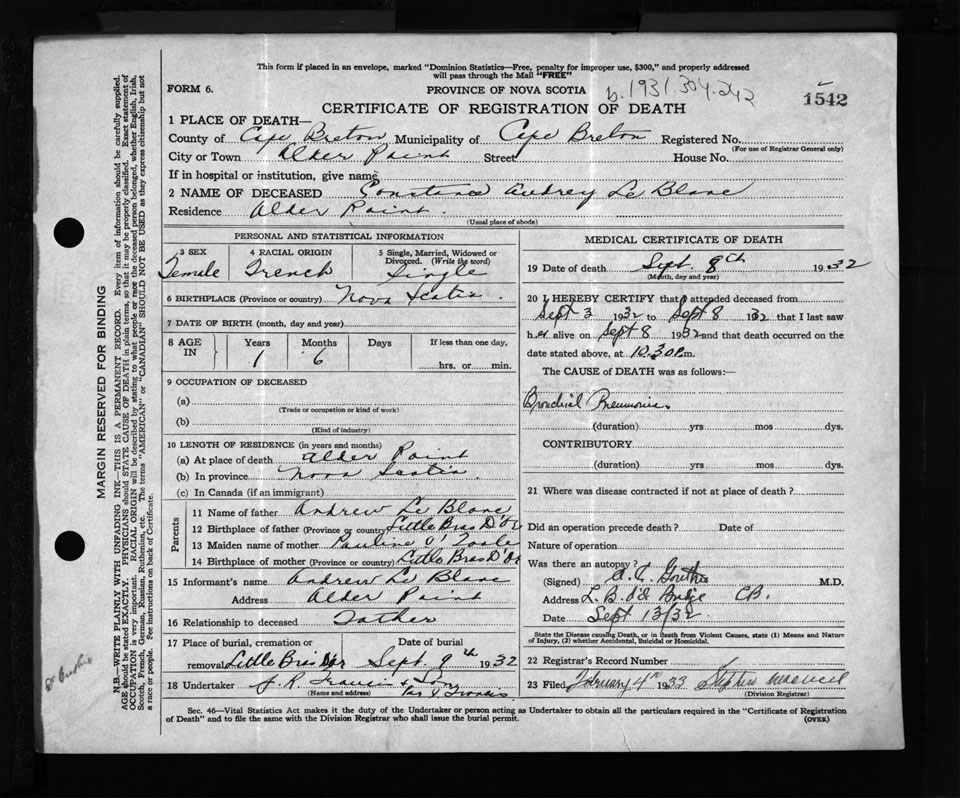 This form if placed in an envelope, marked "Dominion Statistics—Free, penalty for improper use, $300," and properly addressed
will pass through the Mail "FREE"
FORM 6. PROVINCE OF NOVA SCOTIA b.1931.304.242 1542
CERTIFICATE OF REGISTRATION OF DEATH
1 PLACE OF DEATH—
County of Cape Breton Municipality of Cape Breton Registered No.
(For use of Registrar General only)
City or Town Alder Point Street House No.
If in hospital or institution, give name
2 NAME OF DECEASED Constance Audrey Le Blanc
Residence Alder Point.
(Usual place of abode)
PERSONAL AND STATISTICAL INFORMATION
3 SEX 4 RACIAL ORIGIN 5 Single, Married, Widowed or Divorced. (Write the word)
Female French Single
6 BIRTHPLACE (Province or country) Nova Scotia.
7 DATE OF BIRTH (month, day and year)
8 AGE IN Years Months Days If less than one day,
1 6 hrs. or min.
9 OCCUPATION OF DECEASED
(a)
(Trade or occupation or kind of work)
(b)
(Kind of industry)
10 LENGTH OF RESIDENCE (in years and months)
(a) At place of death Alder Point
(b) In province Nova Scotia
(c) In Canada (if an immigrant)
Parents
11 Name of father Andrew Le Blanc
12 Birthplace of father (Province or country) Little Bras D'Or
13 Maiden name of mother Pauline O'Toole
14 Birthplace of mother (Province or country) Little Bras D'Or
15 Informant's name Andrew Le Blanc
Address Alder Point
16 Relationship to deceased Father
17 Place of burial, cremation or Date of burial
removal Little Bras Dor Sept. 9th 1932
18 Undertaker J. R. Francis & Son
(Name and address)
MEDICAL CERTIFICATE OF DEATH
19 Date of death Sept. 8th 1932
(Month, day and year)
20 I HEREBY CERTIFY that I attended deceased from
Sept 3 1932 to Sept 8 1932 that I last saw
her alive on Sept 8 1932 and that death occurred on the
date stated above, at 10.30 P.m.
The CAUSE OF DEATH was as follows:—
Bronchial Pneumonia.
(duration) yrs mos dys.
CONTRIBUTORY
(duration) yrs mos dys.
21 Where was disease contracted if not at place of death?
Did an operation precede death? Date of
Nature of operation
Was there an autopsy?
(Signed) M.D.
Address L. B. d'Or Bridge C.B.
Date Sept 13/32
State the Disease causing Death, or in death from Violent Causes, state (1) Means and Nature
of Injury, (2) whether Accidental, Suicidal or Homicidal.
22 Registrar's Record Number
23 Filed February 4th 1933 Stephen
(Division Registrar)
Sec. 46—Vital Statistics Act makes it the duty of the Undertaker or person acting as Undertaker to obtain all the particulars required in the "Certificate of Registration
of Death" and to file the same with the Division Registrar who shall issue the burial permit. (OVER)
MARGIN RESERVED FOR BINDING
N.B.—WRITE PLAINLY WITH UNFADING INK—THIS IS A PERMANENT RECORD. Every item of information should be carefully supplied.
AGE should be stated EXACTLY. PHYSICIANS should STATE CAUSE OF DEATH in plain terms, so that it may be properly classified. Exact statement of
OCCUPATION is very important. RACIAL ORIGIN will be described by stating to what people or race the deceased person belonged, whether English, Irish,
Scotch, French, German, Russian, Ruthenian, etc. The terms "AMERICAN" or "CANADIAN" SHOULD NOT BE USED as they express citizenship but not
a race or people. See instructions on back of Certificate.